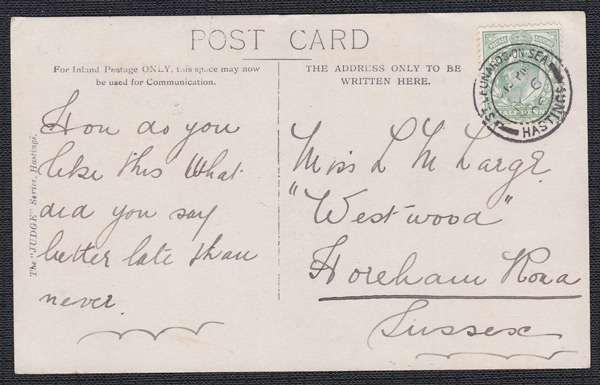 POST CARD
For Inland Postage ONLY, this space may now
be used for Communication.
THE ADDRESS ONLY TO BE
WRITTEN HERE.
The "JUDGE" Series, Hastings.
How do you
like this What
did you say
better late than
never.
Miss L M Large
"Westwood"
Horeham Road
Sussex
ST LEONARDS-ON-SEA
HASTINGS